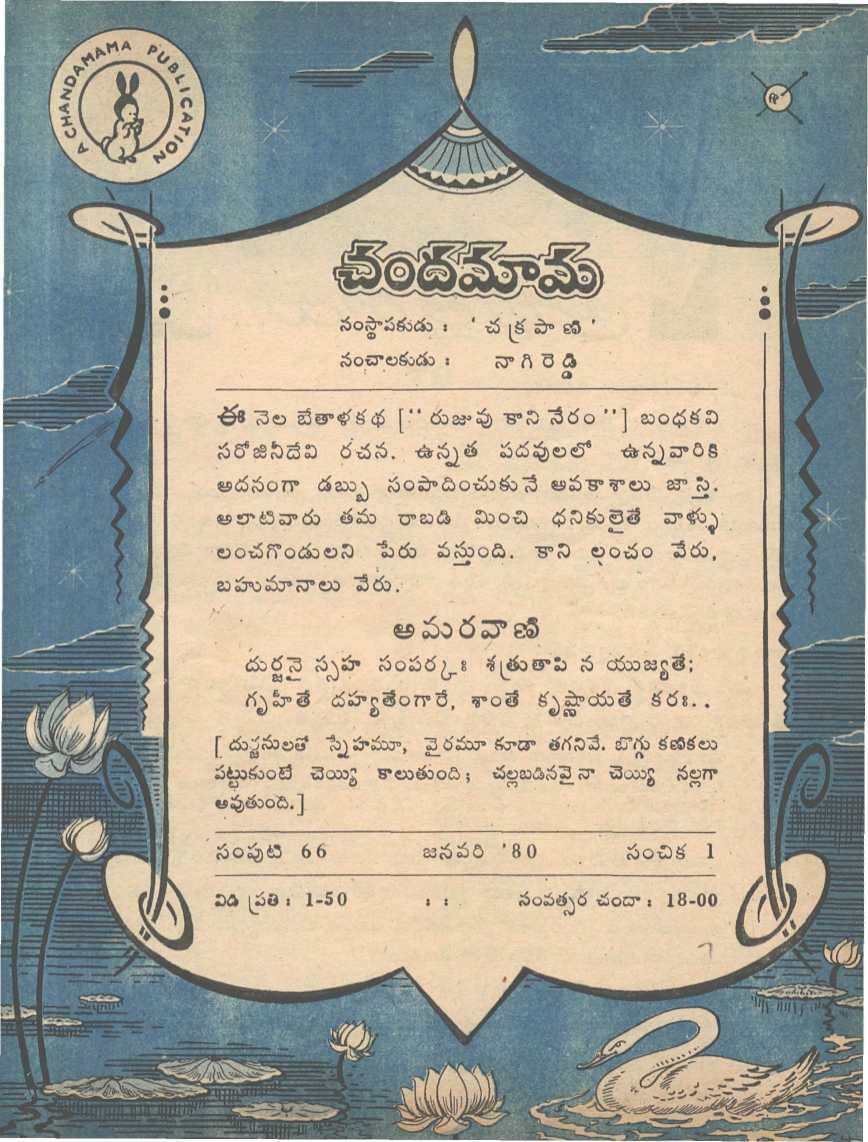 A CHANDAMAMA PUBLICATION
చందమామ
సంస్థాపకుడు : ' చక్రపాణి '
సంచాలకుడు : నాగిరెడ్డి
ఈ నెల బేతాళకథ ["రుజువు కాని నేరం"] బంధకవి
సరోజినీదేవి రచన. ఉన్నత పదవులలో ఉన్నవారికి
అదనంగా డబ్బు సంపాదించుకునే అవకాశాలు జాస్తి.
అలాటివారు తమ రాబడి మించి ధనికులైతే వాళ్ళు
లంచగొండులని పేరు వస్తుంది. కాని లంచం వేరు,
బహుమానాలు వేరు.
అమరవాణి
దుర్జనై స్సహ సంపర్కః శత్రుతాపి న యుజ్యతే;
గృహీతే దహ్యతేంగారే, శాంతే కృష్ణాయతే కరః..
[దుర్జనులతో స్నేహమూ, వైరమూ కూడా తగనివే. బొగ్గు కణికలు
పట్టుకుంటే చెయ్యి కాలుతుంది; చల్లబడినవైనా చెయ్యి నల్లగా
అవుతుంది.]
సంపుటి 66 జనవరి '80 సంచిక 1
విడి ప్రతి : 1-50 : : సంవత్సర చందా : 18-00